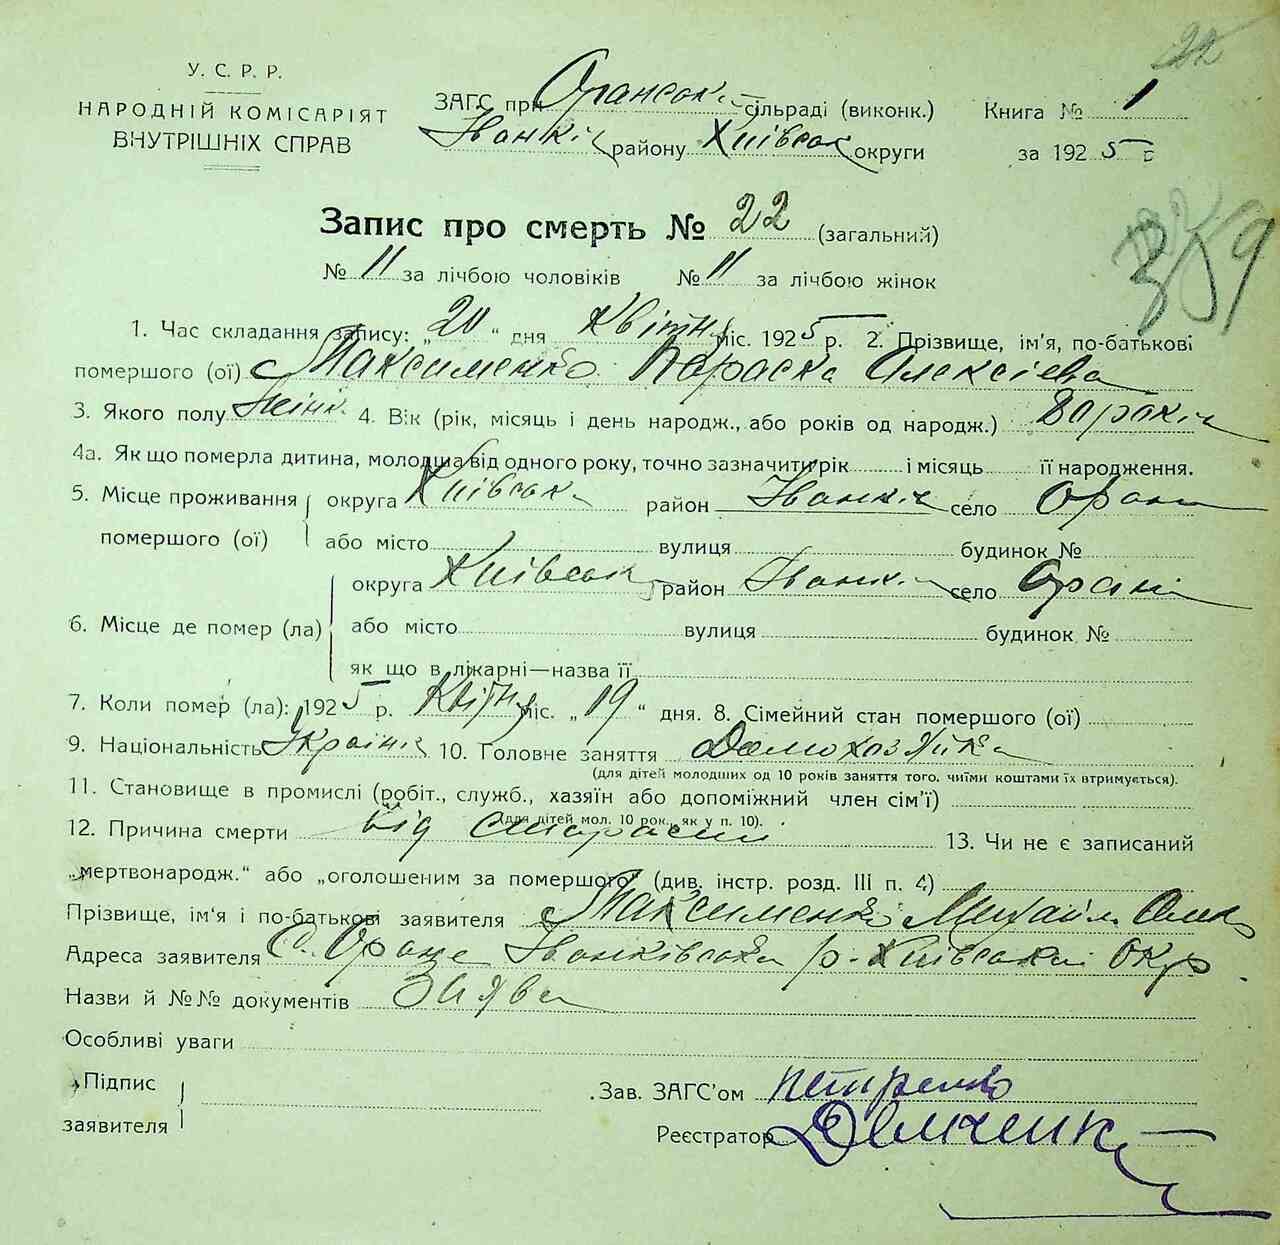 22
У. С. Р. Р.
НАРОДНІЙ КОМІСАРІЯТ
ВНУТРІШНІХ СПРАВ
ЗАГС при Оранськ. сільраді (виконк.)
Іванків району Київськ округи
Книга № 1
за 1925 р
Запис про смерть № 22 (загальний)
№ 11 за лічбою чоловіків № 11 за лічбою жінок
359
1. Час складання запису: „20" дня Квітн міс. 1925 р. 2. Прізвище, ім'я, по-батькові
помершого (ої) Максименко Параска Олексієва
3. Якого полу Жінк. 4. Вік (рік, місяць і день народж., або років од народж.)
4а. Як що померла дитина, молодша від одного року, точно зазначити рік і місяць її народження.
5. Місце проживання помершого (ої) округа Київськ район Іванків село Орани
або місто вулиця будинок №
6. Місце де помер (ла) округа Київськ район Іванків село Орани
або місто вулиця будинок №
як що в лікарні—назва її
7. Коли помер (ла): 1925 р. Квітн міс. „19" дня. 8. Сімейний стан помершого (ої)
9. Національність Україн 10. Головне заняття Домохозяйка
(для дітей молодших од 10 років заняття того, чиїми коштами їх втримується).
11. Становище в промислі (робіт., служб., хазяїн або допоміжний член сім'ї)
(для дітей мол. 10 рок., як у п. 10).
12. Причина смерти Від старости 13. Чи не є записаний
„мертвонародж." або „оголошеним за помершого" (див. інстр. розд. III п. 4)
Прізвище, ім'я і по-батькові заявителя Максименко Михайло Олек
Адреса заявителя С. Оране Іванківська р. Київської Окр
Назви й №№ документів Заява
Особливі уваги
Підпис заявителя
Зав. ЗАГС'ом Петренко
Реєстратор Демченк